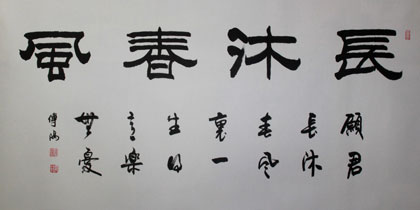 長沐春風
願君
長沐
春风
裏一
生得
意樂
無憂